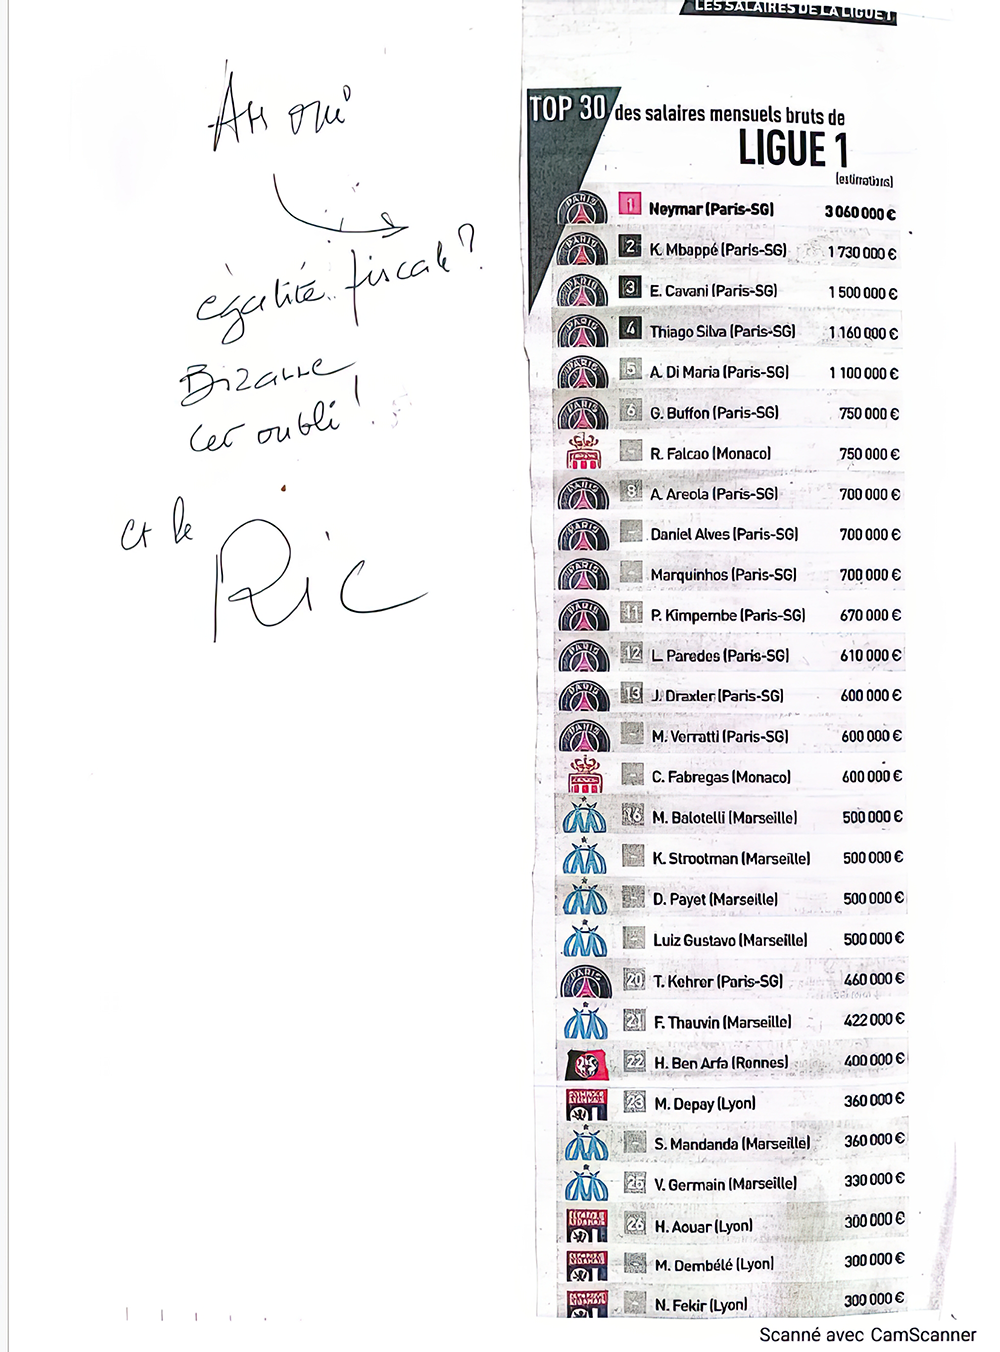 LES SALAIRES DE LA LIGUE 1
Ah oui
égalité fiscale ?
Bizarre
cet oubli !
et le
Ric
TOP 30 des salaires mensuels bruts de
LIGUE 1
(estimations)
1 Neymar (Paris-SG) 3 060 000 €
2 K. Mbappé (Paris-SG) 1 730 000 €
3 E. Cavani (Paris-SG) 1 500 000 €
4 Thiago Silva (Paris-SG) 1 160 000 €
5 A. Di Maria (Paris-SG) 1 100 000 €
6 G. Buffon (Paris-SG) 750 000 €
- R. Falcao (Monaco) 750 000 €
8 A. Areola (Paris-SG) 700 000 €
- Daniel Alves (Paris-SG) 700 000 €
- Marquinhos (Paris-SG) 700 000 €
11 P. Kimpembe (Paris-SG) 670 000 €
12 L. Paredes (Paris-SG) 610 000 €
13 J. Draxler (Paris-SG) 600 000 €
- M. Verratti (Paris-SG) 600 000 €
- C. Fabregas (Monaco) 600 000 €
16 M. Balotelli (Marseille) 500 000 €
- K. Strootman (Marseille) 500 000 €
- D. Payet (Marseille) 500 000 €
- Luiz Gustavo (Marseille) 500 000 €
20 T. Kehrer (Paris-SG) 460 000 €
21 F. Thauvin (Marseille) 422 000 €
22 H. Ben Arfa (Rennes) 400 000 €
23 M. Depay (Lyon) 360 000 €
- S. Mandanda (Marseille) 360 000 €
25 V. Germain (Marseille) 330 000 €
26 H. Aouar (Lyon) 300 000 €
- M. Dembélé (Lyon) 300 000 €
- N. Fekir (Lyon) 300 000 €
Scanné avec CamScanner